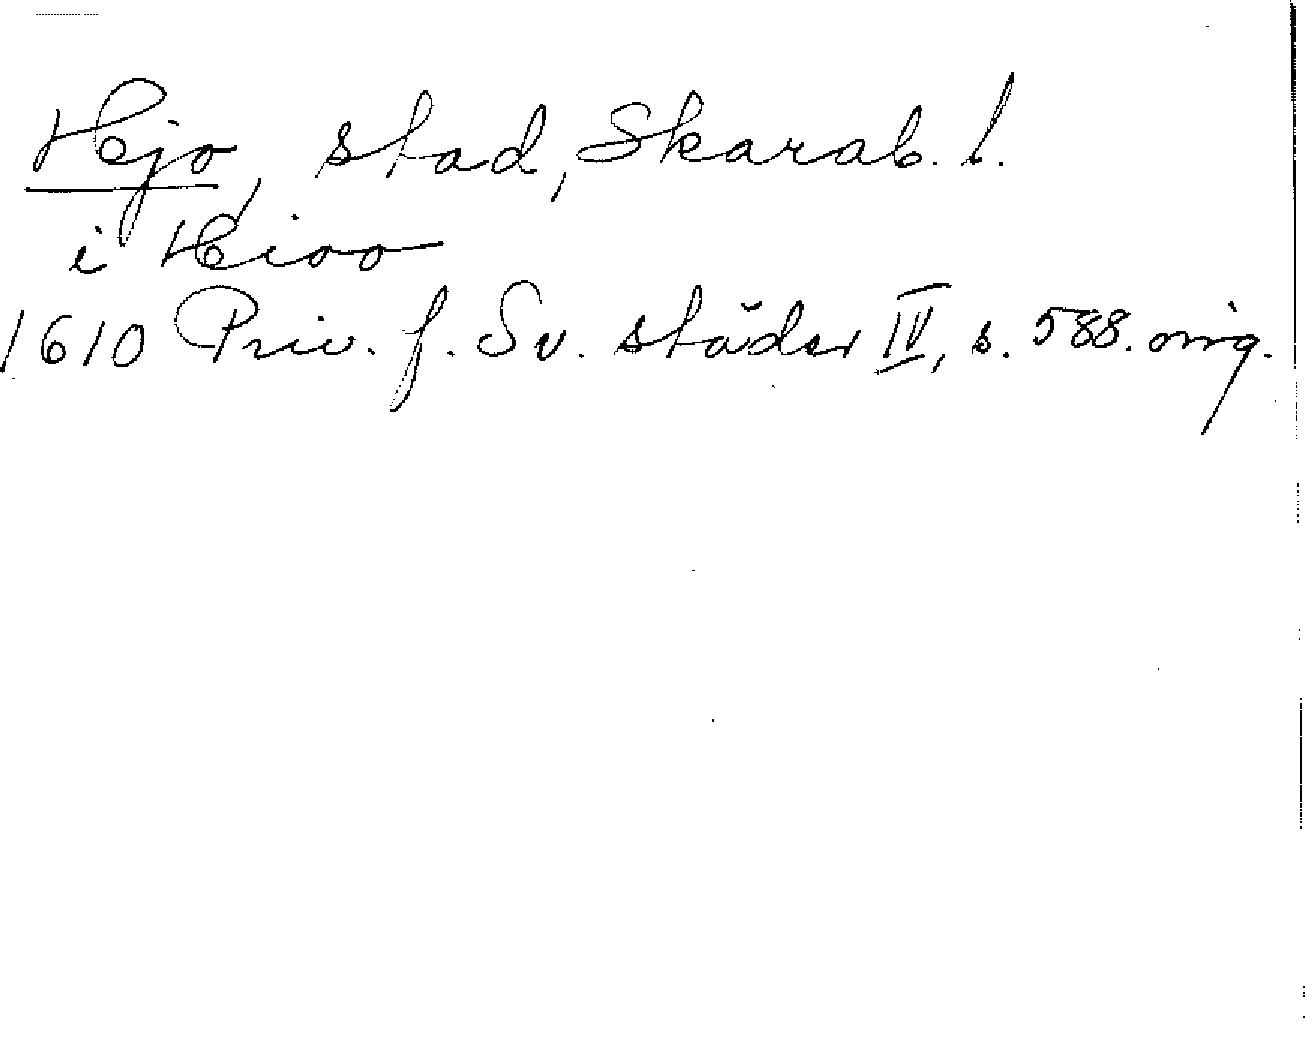 Hjo, stad, Skarab. l.
i Hioo
1610 Priv. f. Sv. städer IV, s. 588. orig.